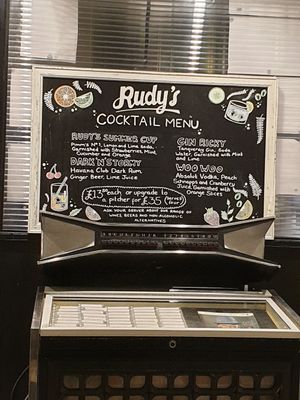 Rudy's
COCKTAIL MENU
RUDY'S SUMMER CUP
Pimm's Nº1, Lemon and Lime Soda,
Garnished with Strawberries, Mint,
Cucumber and Orange
DARK 'N' STORMY
Havana Club Dark Rum,
Ginger Beer, Lime Juice
GIN RICKY
Tanqueray Gin, Soda
Water, Garnished with Mint
and Lime
WOO WOO
Absolut Vodka, Peach
Schnapps and Cranberry
Juice, Garnished with
Orange Slices
£13 each or upgrade to
a pitcher for £35 (serves four)
ASK YOUR SERVER ABOUT OUR RANGE OF
WINES, BEERS AND NON ALCOHOLIC
ALTERNATIVES